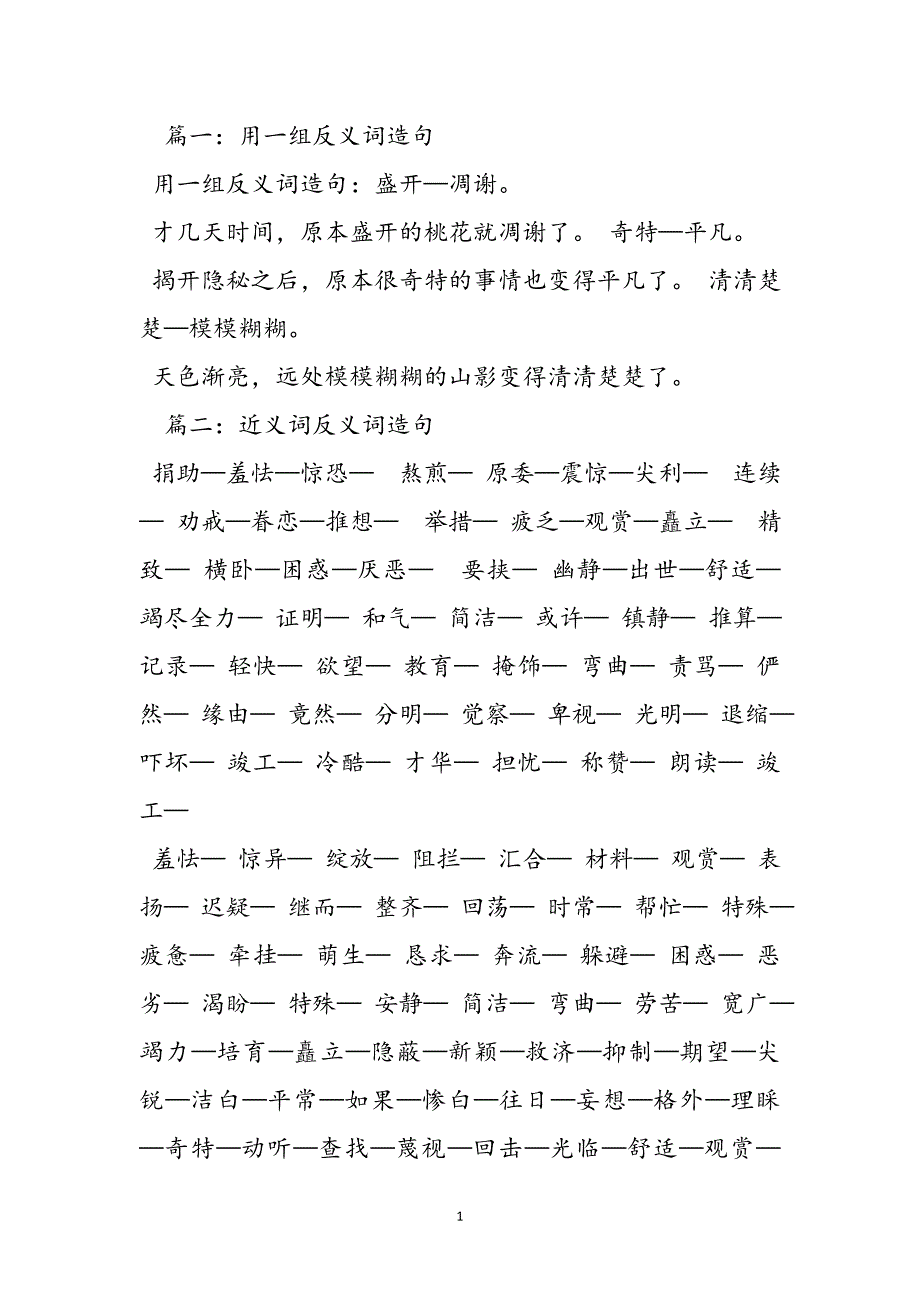 篇一：用一组反义词造句
用一组反义词造句：盛开—凋谢。
才几天时间，原本盛开的桃花就凋谢了。 奇特—平凡。
揭开隐秘之后，原本很奇特的事情也变得平凡了。 清清楚
楚—模模糊糊。
天色渐亮，远处模模糊糊的山影变得清清楚楚了。
篇二：近义词反义词造句
捐助—羞怯—惊恐— 熬煎— 原委—震惊—尖利— 连续
— 劝戒—眷恋—推想— 举措— 疲乏—观赏—矗立— 精
致— 横卧—困惑—厌恶— 要挟— 幽静—出世—舒适—
竭尽全力— 证明— 和气— 简洁— 或许— 镇静— 推算—
记录— 轻快— 欲望— 教育— 掩饰— 弯曲— 责骂— 俨
然— 缘由— 竟然— 分明— 觉察— 卑视— 光明— 退缩—
吓坏— 竣工— 冷酷— 才华— 担忧— 称赞— 朗读— 竣
工—
羞怯— 惊异— 绽放— 阻拦— 汇合— 材料— 观赏— 表
扬— 迟疑— 继而— 整齐— 回荡— 时常— 帮忙— 特殊—
疲惫— 牵挂— 萌生— 恳求— 奔流— 躲避— 困惑— 恶
劣— 渴盼— 特殊— 安静— 简洁— 弯曲— 劳苦— 宽广—
竭力—培育—矗立—隐蔽—新颖—救济—抑制—期望—尖
锐—洁白—平常—如果—惨白—往日—妄想—格外—理睬
—奇特—动听—查找—蔑视—回击—光临—舒适—观赏—
1